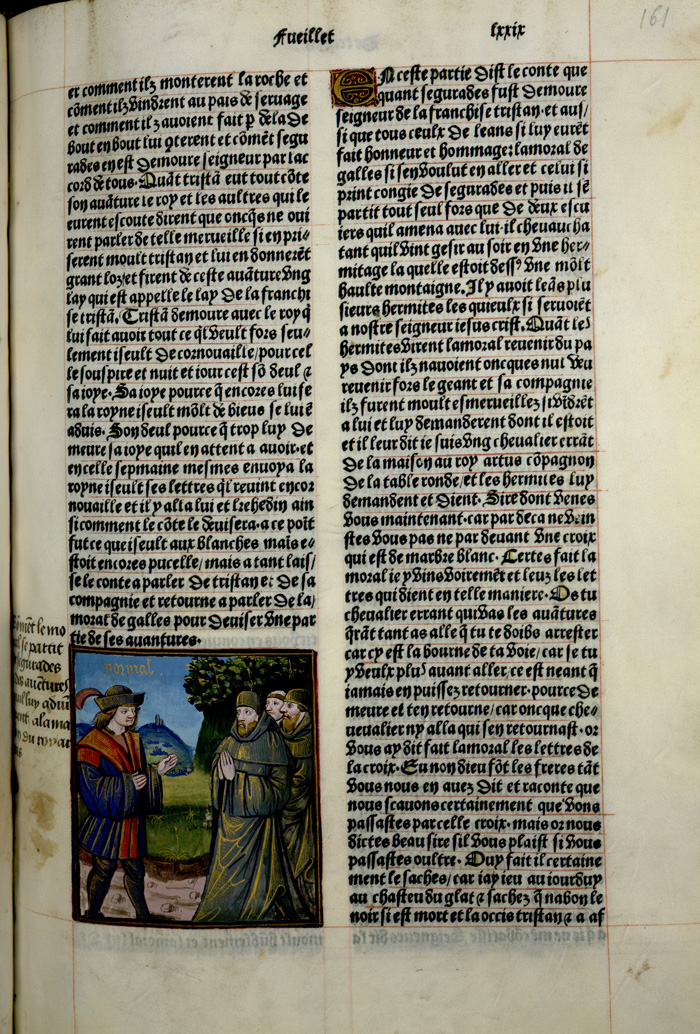 161
Fueillet lxxix
et comment ilz monterent la roche et
cōment ilz vindrent au pais de seruage
et comment ilz auoient fait p̄ de la de
bout en bout lui q̄terent et cōmēt segu
rades en est demoure seigneur par lac
cord de tous. Quāt tristā eut tout cōte
son auāture le roy et les aultres qui le
eurent escoute dirent que oncq̄s ne oui
rent parler de telle merueille si en pri⸗
serent moult tristan et lui en donnerēt
grant loz/et firent de ceste auāture vng
lay qui est appelle le lay de la franchi
se tristā. Tristā demoure auec le roy q̄
lui fait auoir tout ce q̄l veult fors seu⸗
lement iseult de cornouaille/pour cel
le souspire et nuit et iour cest sō deul ⁊
sa ioye. Sa ioye pource q̄ encores lui se
ra la royne iseult mōlt de biens se lui ē
aduis. Son deul pource q̄ trop luy de
meure sa ioye quil en attent a auoir.et
en celle sepmaine mesmes enuoya la
royne iseult ses lettres q̄l reuint encor
nouaille et il y alla lui et kehedin ain
si comment le cōte le deuisera.a ce poīt
fut ce que iseult aux blanches mais e⸗
stoit encores pucelle/ mais a tant lais/
se le conte a parler de tristan et de sa
compagnie et retourne a parler de la/
morat de galles pour deuiser vne par
tie de ses auantures.
cōmēt le mo
se partit
segurades
des auētures
luy aduī
rent
du roy
EN ceste partie dist le conte que
quant segurades fust demoure
seigneur de la franchise tristan.et aus/
si que tous ceulx de leans si luy eurēt
fait honneur et hommage: lamoral de
galles si sen voulut en aller et celui si
print congie de segurades et puis il sē
partit tout seul fors que de deux escu
iers quil amena auec lui.il cheuaucha
tant quil vint gesir au soir en vne her⸗
mitage la quelle estoit dessꝰ vne mōlt
haulte montaigne. Il y auoit leās plu
sieurs hermites les quieulx si seruoiēt
a nostre seigneur iesus crist. Quāt les
hermites virent lamoral reuenir du pa
ys dont ilz nauoient oncques nul veu
reuenir fors le geant et sa compagnie
ilz furent moult esmerueillez si vīdrēt
a lui et luy demanderent dont il estoit
et il leur dit ie suis vng cheualier errāt
de la maison au roy artus cōpagnon
de la table ronde/et les hermites luy
demandent et dient. Sire dont venes
vous maintenant.car par deca ne vein
stes vous pas ne par deuant vne croix
qui est de marbre blanc. Certes fait la
moral ie y vins voiremēt et leuz les let
tres qui dient en telle maniere. Os tu
cheualier errant qui vas les auātures
q̄rāt tant as alle q̄ tu te doibs arrester
car cy est la bourne de ta voie/ car se tu
y veulx plus auant aller/ce est neant q̄
iamais en puissez retourner.pource de
meure et ten retourne/car oncque che⸗
ueualier ny alla qui sen retournast.or
vous ay dit fait lamoral les lettres de
la croix. Eu non dieu fōt les freres tāt
vous nous en auez dit et raconte que
nous scauons certainement que vons
passastes par celle croix.mais or nous
dictes beau sire sil vous plaist si vous
passastes oultre. Ouy fait il certaine
ment le saches/car iay ieu au iourduy
au chasteu du glat ⁊ sachez q̄ nabon le
noir si est mort et la occis tristan ⁊ a af